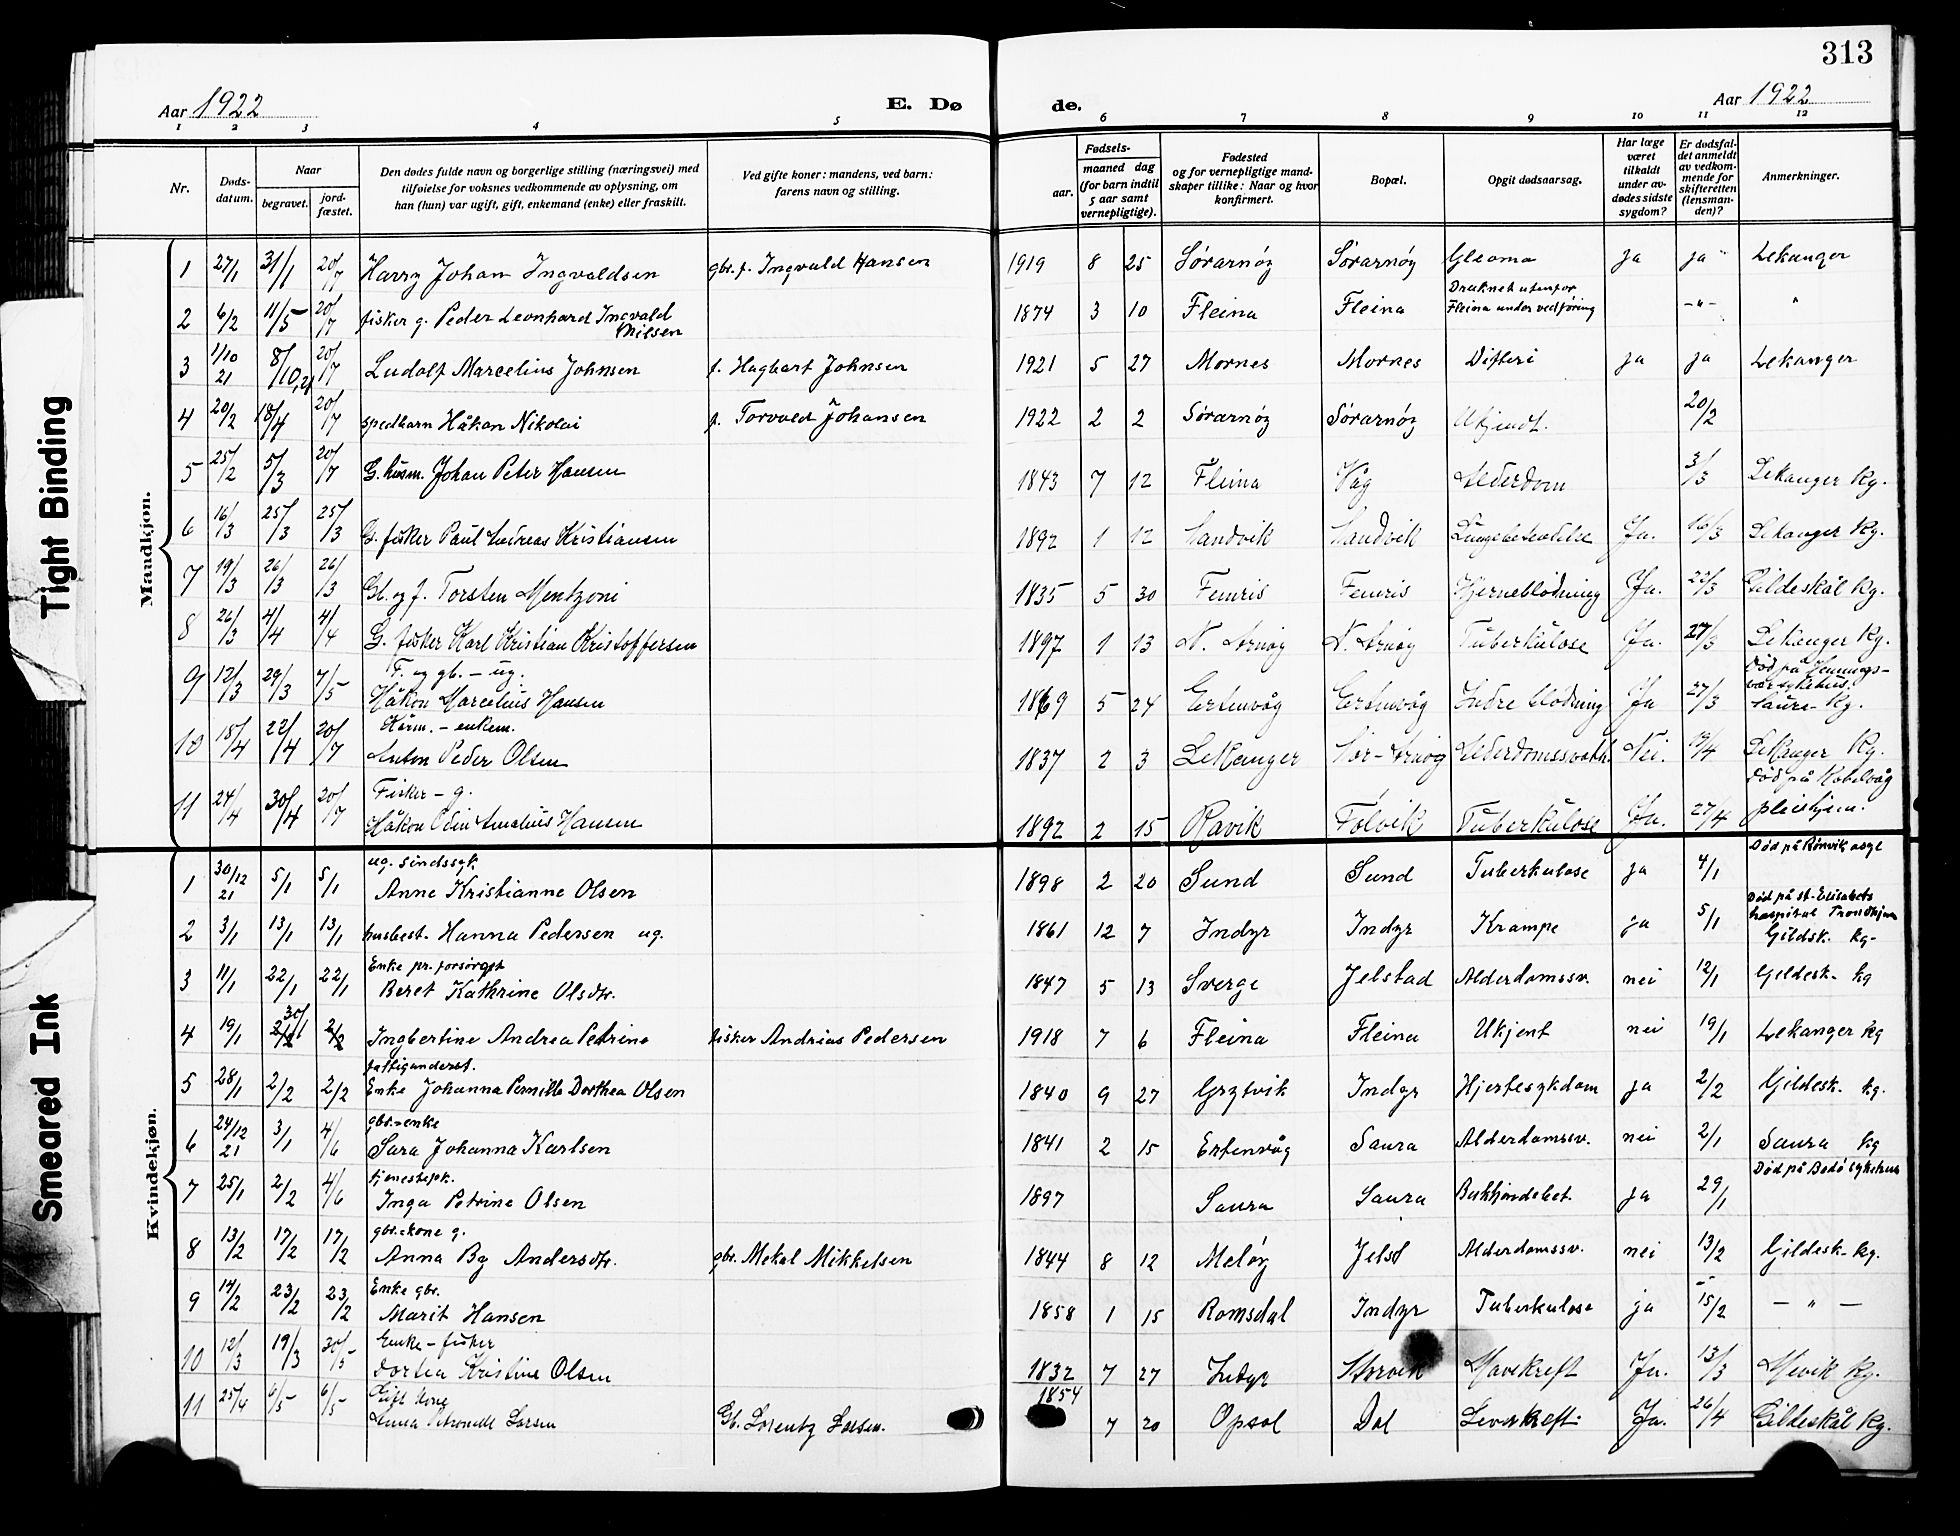 313
Aar 1922 E. Dø de. Aar 1922
1 2 3 4 5 6 7 8 9 10 11 12
Nr. Døds-datum. Naar begravet. jord-fæstet. Den dødes fulde navn og borgerlige stilling (næringsvei) med tilføielse for voksnes vedkommende av oplysning, om han (hun) var ugift, gift, enkemand (enke) eller fraskilt. Ved gifte koner: mandens, ved barn: farens navn og stilling. Fødsels- aar. maaned dag (for barn indtil 5 aar samt vernepligtige). Fødested og for vernepligtige mand-skaper tillike: Naar og hvor konfirmert. Bopæl. Opgit dødsaarsag. Har læge været tilkaldt under av-dødes sidste sygdom? Er dødsfal-det anmeldt av vedkom-mende for skifteretten (lensman-den)? Anmerkninger.
Mandkjøn.
1 27/1 31/1 20/7 Harry Johan Ingvaldsen gbr. f. Ingvald Hansen 1919 8 25 Sørarnøy Sørarnøy Glioma ja ja Lekanger
2 6/2 11/5 20/7 fisker g. Peder Leonhard Ingvald Nilsen 1874 3 10 Fleina Fleina Druknet utenfor Fleina under vedføring -"- "
3 1/10 21 8/10,21 20/7 Ludolf Marcelius Johnsen f. Hagbart Johnsen 1921 5 27 Mornes Mornes Difteri ja ja Lekanger
4 20/2 18/4 20/7 spedbarn Håkon Nikolai f. Torvald Johansen 1922 2 2 Sørarnøy Sørarnøy Ukjendt. 20/2
5 25/2 5/3 20/7 G. husm. Johan Peter Hansen 1843 7 12 Fleina Våg Alderdom 3/3 Lekanger Kg.
6 16/3 25/3 25/3 G. fisker Paul Andreas Kristiansen 1892 1 12 Sandvik Sandvik Lungebetendelse Ja. 16/3 Lekanger Kg.
7 19/3 26/3 26/3 Gb. og f. Torsten Mentzoni 1835 5 30 Femris Femris Hjerneblødning Ja. 22/3 Gildeskål Kg.
8 26/3 4/4 4/4 G. fisker Karl Kristian Kristoffersen 1897 1 13 N. Arnøy N. Arnøy Tuberkulose Ja. 27/3 Lekanger Kg.
9 12/3 29/3 7/5 F. og gb. - ug. Håkon Marcelius Hansen 1869 5 24 Ertenvåg Ertenvåg Indre blødning Ja 27/3 Død på Hennings-vær sykehus. Saura Kg.
10 18/4 22/4 20/7 Kårm. - enkem. Anton Peder Olsen 1837 2 3 Lekanger Sør-Arnøy Alderdomssvakh. Nei. 19/4 Lekanger Kg.
11 24/4 30/4 20/7 Fisker - g. Håkon Odin Amalius Hansen 1892 2 15 Ravik Følvik Tuberkulose Ja. 27/4 Død på Kabelvåg pleiehjem.
Kvindekjøn.
1 30/12 21 5/1 5/1 ug. sindssyk. Anne Kristianne Olsen 1898 2 20 Sund Sund Tuberkulose ja 4/1 Død på Rønvik asyl
2 3/1 13/1 13/1 husbest. Hanna Pedersen ug. 1861 12 7 Indyr Indyr Krampe ja 5/1 Død på st. Elisabets hospital Trondhjem Gildsk. kg-
3 11/1 22/1 22/1 Enke pr. forsørget Beret Kathrine Olsdtr. 1847 5 13 Sverge Jelstad Alderdomssv. nei 12/1 Gildesk- kg
4 19/1 30/1 2/2 Ingbertine Andrea Petrine fisker Andrias Pedersen 1918 7 6 Fleina Fleina Ukjent nei 19/1 Lekanger kg
5 28/1 2/2 2/2 fattigunderst. Enke Johanna Pernille Dorthea Olsen 1840 9 27 Grytvik Indyr Hjertesykdom ja 2/2 Gildesk- kg.
6 24/12 21 3/1 4/6 gbr.-enke Sara Johanna Karlsen 1841 2 15 Ertenvåg Saura Alderdomssv. nei 2/1 Saura kg
7 25/1 2/2 4/6 tjenestepk. Inga Petrine Olsen 1897 Saura Saura Bukhindebet. ja 29/1 Død på Bodø sykehus
8 13/2 17/2 17/2 gbr.-kone g. Anna By Andersdtr. gbr. Mekal Mikkelsen 1844 8 12 Meløy Jelst Alderdomssv. nei 13/2 Gildesk- kg.
9 14/2 23/2 23/2 Enke gbr. Marit Hansen 1858 1 15 Romsdal Indyr Tuberkulose ja 15/2 - " -
10 12/3 19/3 30/5 Enke - fisker Dortea Kristine Olsen 1832 7 27 Indyr Storvik Mavekreft Ja. 13/3 Mevik Kg.
11 25/4 6/5 6/5 Gift kone Anna Petronelle Larsen Gb. Lorentz Larsen. 1854 7 20 Opsal Dal Leverkreft Ja. 26/4 Gildeskål Kg.
Tight Binding
Smeared Ink